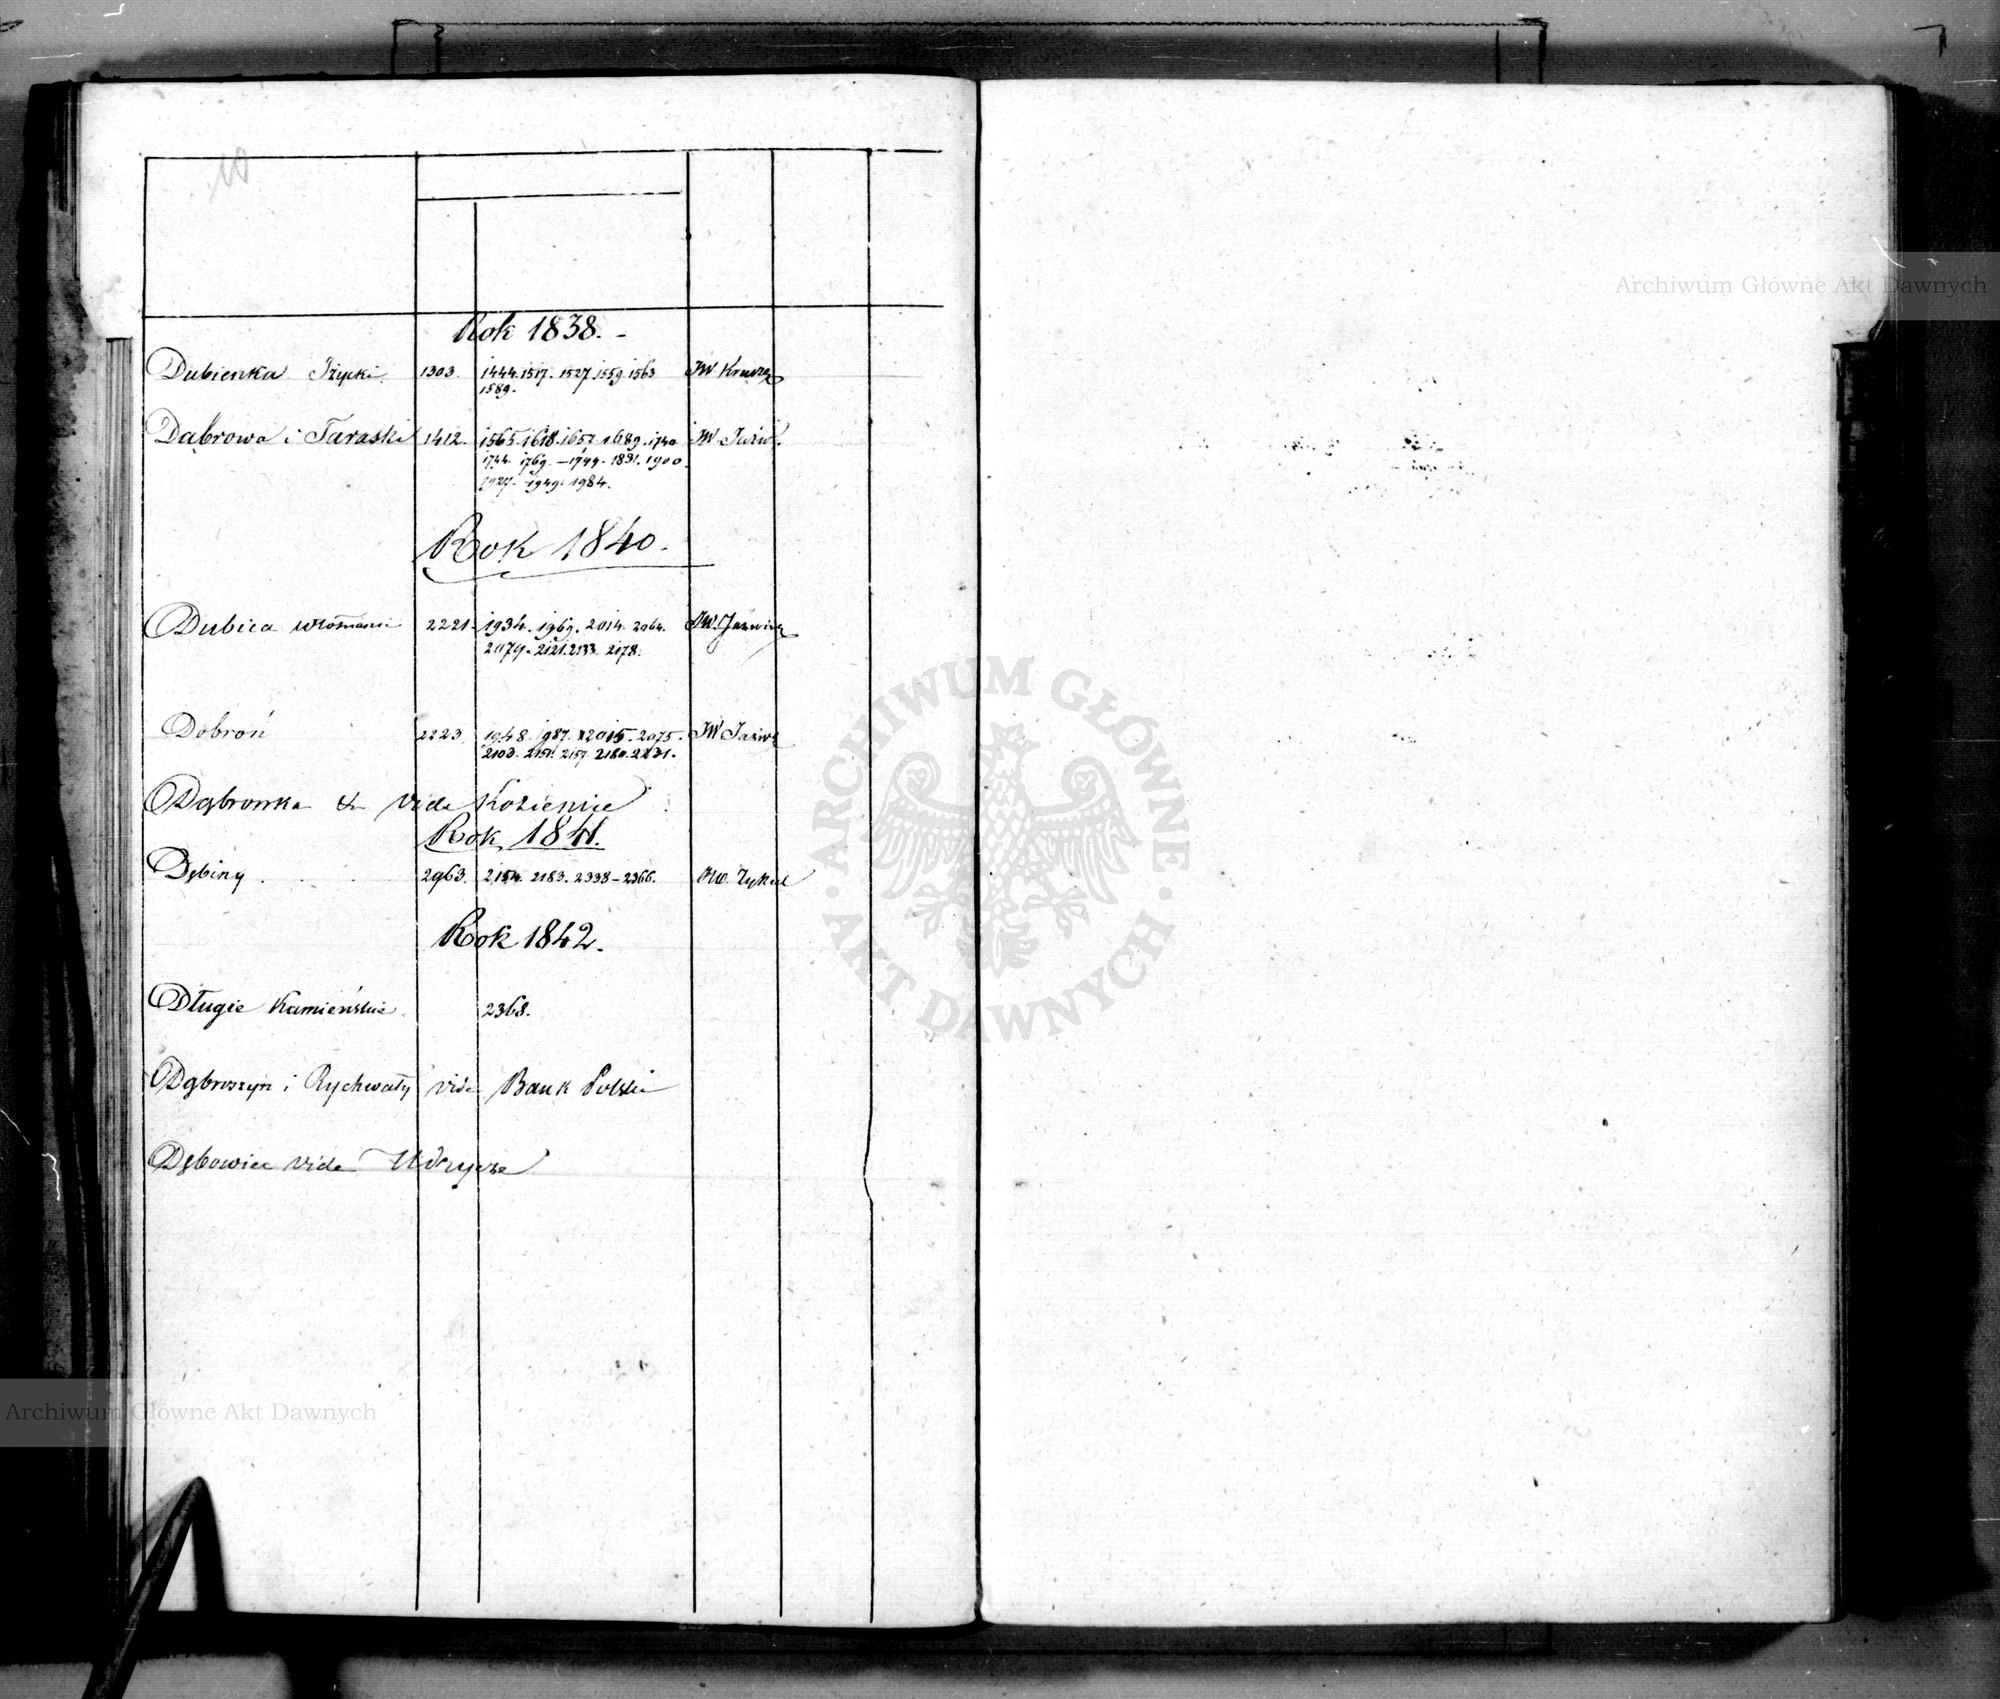 Rok 1838. -
Dubienka Iżycki. 1303. 1444. 1517. 1527. 1559. 1563 JW
1589.
Dąbrowa i Taraski 1412. 1565. 1618. 1657. 1689. 1740 JW Jaźw.
1744. 1769. - 1799. 1831. 1900.
1927. - 1949. 1984.
Rok 1840.
Dubica 2221. 1934. 1969. 2014. 2064. JW. Jaźwiń
2079. 2121. 2133. 2178.
Dobroń 2223. 1948. 1987. 2015. 2075. JW Jaźwi
2103. 2151. 2157. 2180. 2231.
Dąbrowka & vide Kozienice
Rok 1841.
Dębiny . . . 2963. 2154. 2183. 2338 - 2366. JW.
Rok 1842.
Długie Kamieńskie 2368.
Dąbroszyn i Rychwały vide Bank Polski
Dębowiec vide Udrycze
Archiwum Główne Akt Dawnych
ARCHIWUM GŁÓWNE
AKT DAWNYCH
Archiwum Główne Akt Dawnych